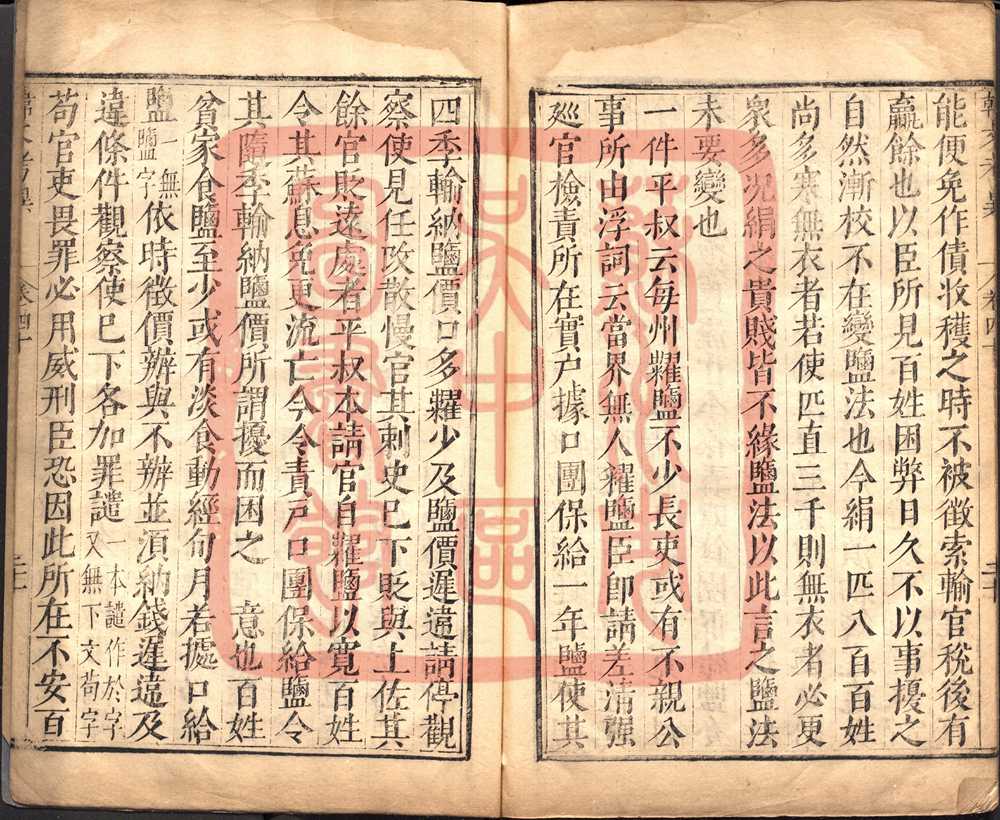 能便免作債收穫之時不被徵索輸官稅後有
贏餘也以臣所見百姓困弊日久不以事擾之
自然漸校不在變鹽法也今絹一匹八百百姓
尚多寒無衣者若使匹直三千則無衣者必更
衆多況絹之貴賤皆不緣鹽法以此言之鹽法
未要變也
一件平叔云每州糶鹽不少長吏或有不親公
事所由浮詞云當界無人糴鹽臣即請差清强
廵官檢責所在實户據口團保給一年鹽使其
四季輸納鹽價口多糶少及鹽價遲違請停觀
察使見任改散慢官其刺史已下貶與上佐其
餘官貶遠處者平叔本請官自糶鹽以寛百姓
令其蘇息免更流亡今令責户口團保給鹽令
其隨季輸納鹽價所謂擾而困之 意也百姓
貧家食鹽至少或有淡食動經旬月若據口給
鹽一無鹽字依時徵價辨與不辨並須納錢遲違及
違條件觀察使已下各加罪譴一本譴作於字又無下文苟字
苟官吏畏罪必用威刑臣恐因此所在不安百